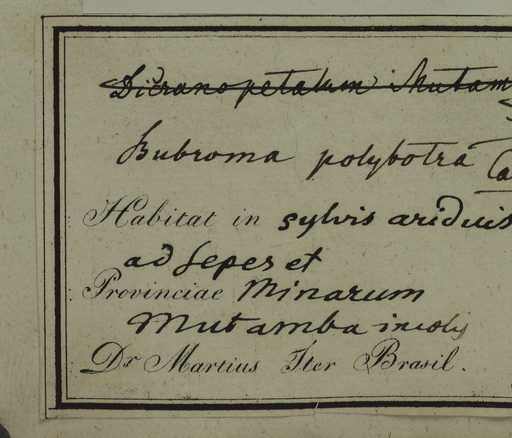 Dicranopetalum Mutam
Bubroma polybotra
Habitat in sylvis ariduis
ad sepes et
Provinciae Minarum
Mutamba incolis
Dr Martius Iter Brasil.